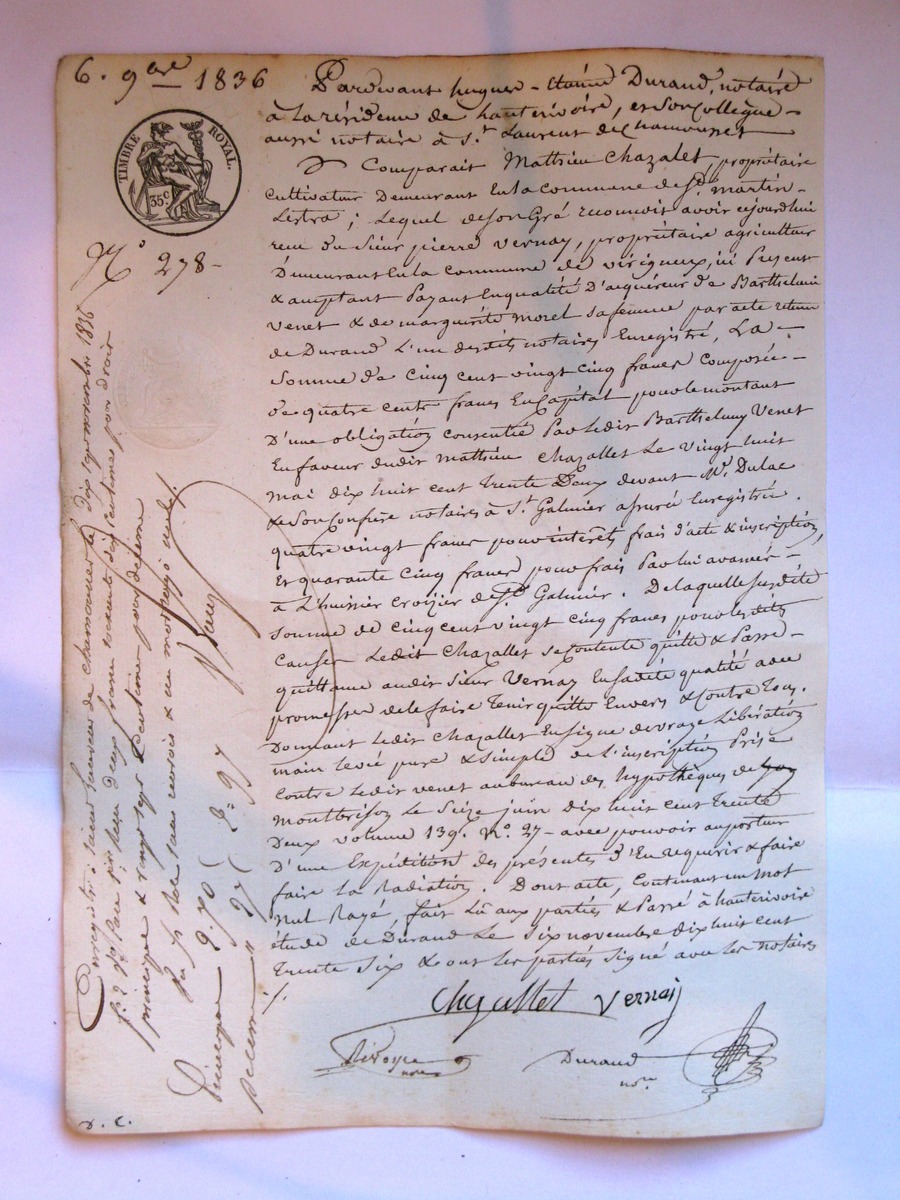 6. 9bre 1836
TIMBRE ROYAL.
35 C.
No. 278-
Pardevant hugues-Etienne Durand, notaire
à la résidence de hauterivoire, et son Collègue-
aussi notaire à St. Laurent de Chamousset
Comparait Mathieu Chazalet, propriétaire
Cultivateur Demeurant En la commune de St. martin-
Lestra; Lequel de son Gré reconnoit avoir cejourdhui
recu du sieur pierre Vernay, propriétaire agriculteur
Demeurant En la commune de virigneux, ici Present
& acceptant Payant En qualité D'acquéreur de Barthelemi
Venet & de marguérite morel sa femme par acte retenu
de Durand L'un desdits notaires Enregistré, La-
Somme de Cinq cent vingt Cinq francs Composée-
de quatre cents francs En Capital pour le montant
D'une obligation consentie Par Ledit Barthelemy Venet
En faveur dudit Mathieu Chazallet Le vingt huit
mai dix huit cent Trente Deux devant Me. Dulac
& son Confrère notaires à St. Galmier assuré Enregistrée.
quatre vingt francs pour interêts frais d'acte & inscription,
Et quarante Cinq francs pour frais Par lui avancés-
à L'huissier Croizier de St. Galmier. De laquelle susdite
Somme de Cinq cent vingt Cinq francs pour les dites
Causes Ledit Chazallet se Contente quitte & Passe-
quittance audit Sieur Vernay En sadite qualité avec
promesse de le faire Tenir quitte Envers & Contre Tous.
Donnant Ledit Chazallet En signe de vraye Libération
main levée pure & simple de L'inscription Prise
Contre Ledit venet au bureau des hypothèques de
Montbrison Le Seize juin Dix huit cent Trente
Deux volume 139. No. 27- avec pouvoir au porteur
D'une Expédition des présentes d'En requérir & faire
faire La Radiation. Dont acte, Contenant un mot
Nul Rayé, fait Lû aux parties & Passé à hauterivoire
étude de Durand Le Six novembre dix huit cent
Trente Six & ont les parties Signé avec les notaires
./.
Chazallet Vernay
nore Durand
nore
Enregistré à Saint Laurent de chamousset le dix sept novembre 1836
principal & vingt sept Centimes pour décime
Principal 2.70 (2=97
Decime " 27(
D. C.